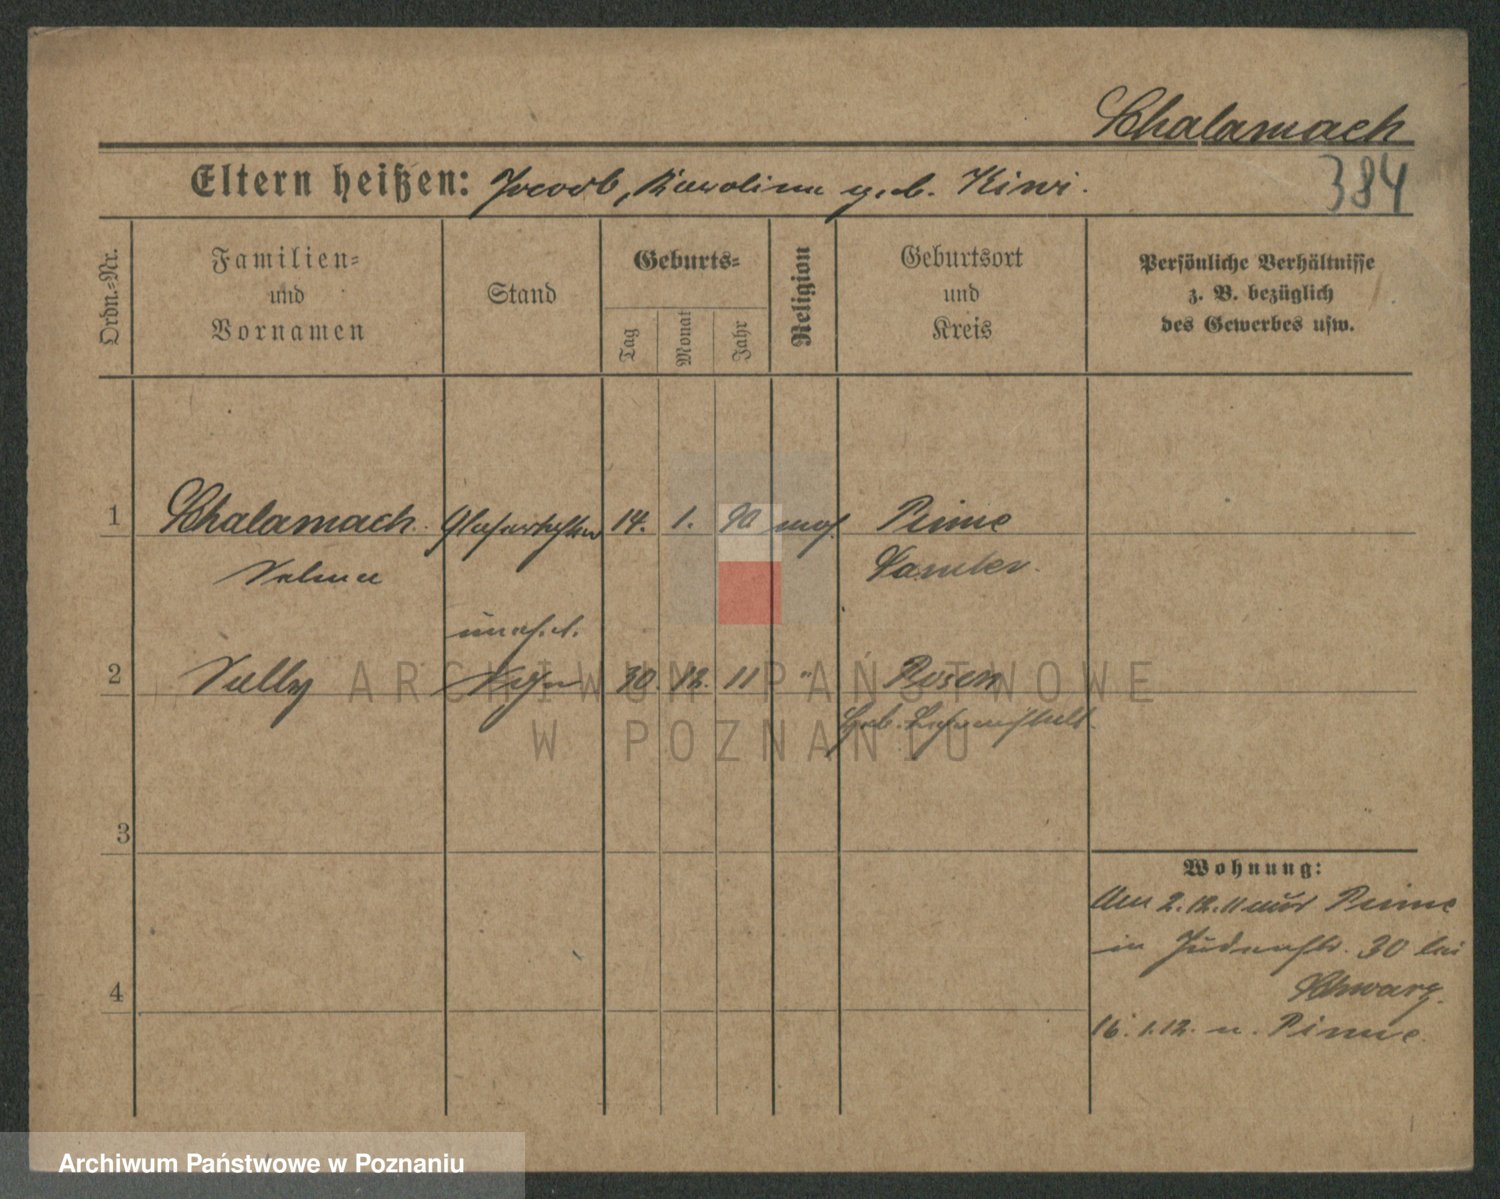 Schalamach
384
Eltern heißen: Jacob, Karolina geb. Kiwi.
Ordn.-Nr.
Familien-
und
Vornamen
Stand
Geburts-
Tag
Monat
Jahr
Religion
Geburtsort
und
Kreis
Persönliche Verhältnisse
z. B. bezüglich
des Gewerbes usw.
1 Schalamach 14. 1. 90 mos. Pinne
Selma Samter.
unehel.
2 Sohn 30. 12. 11 " Posen
3
Wohnung:
Am 2.12.11 aus Pinne
in Judenstr. 30 bei
4 Schwarz.
16.1.12. n. Pinne.
ARCHIWUM PAŃSTWOWE
W POZNANIU
Archiwum Państwowe w Poznaniu